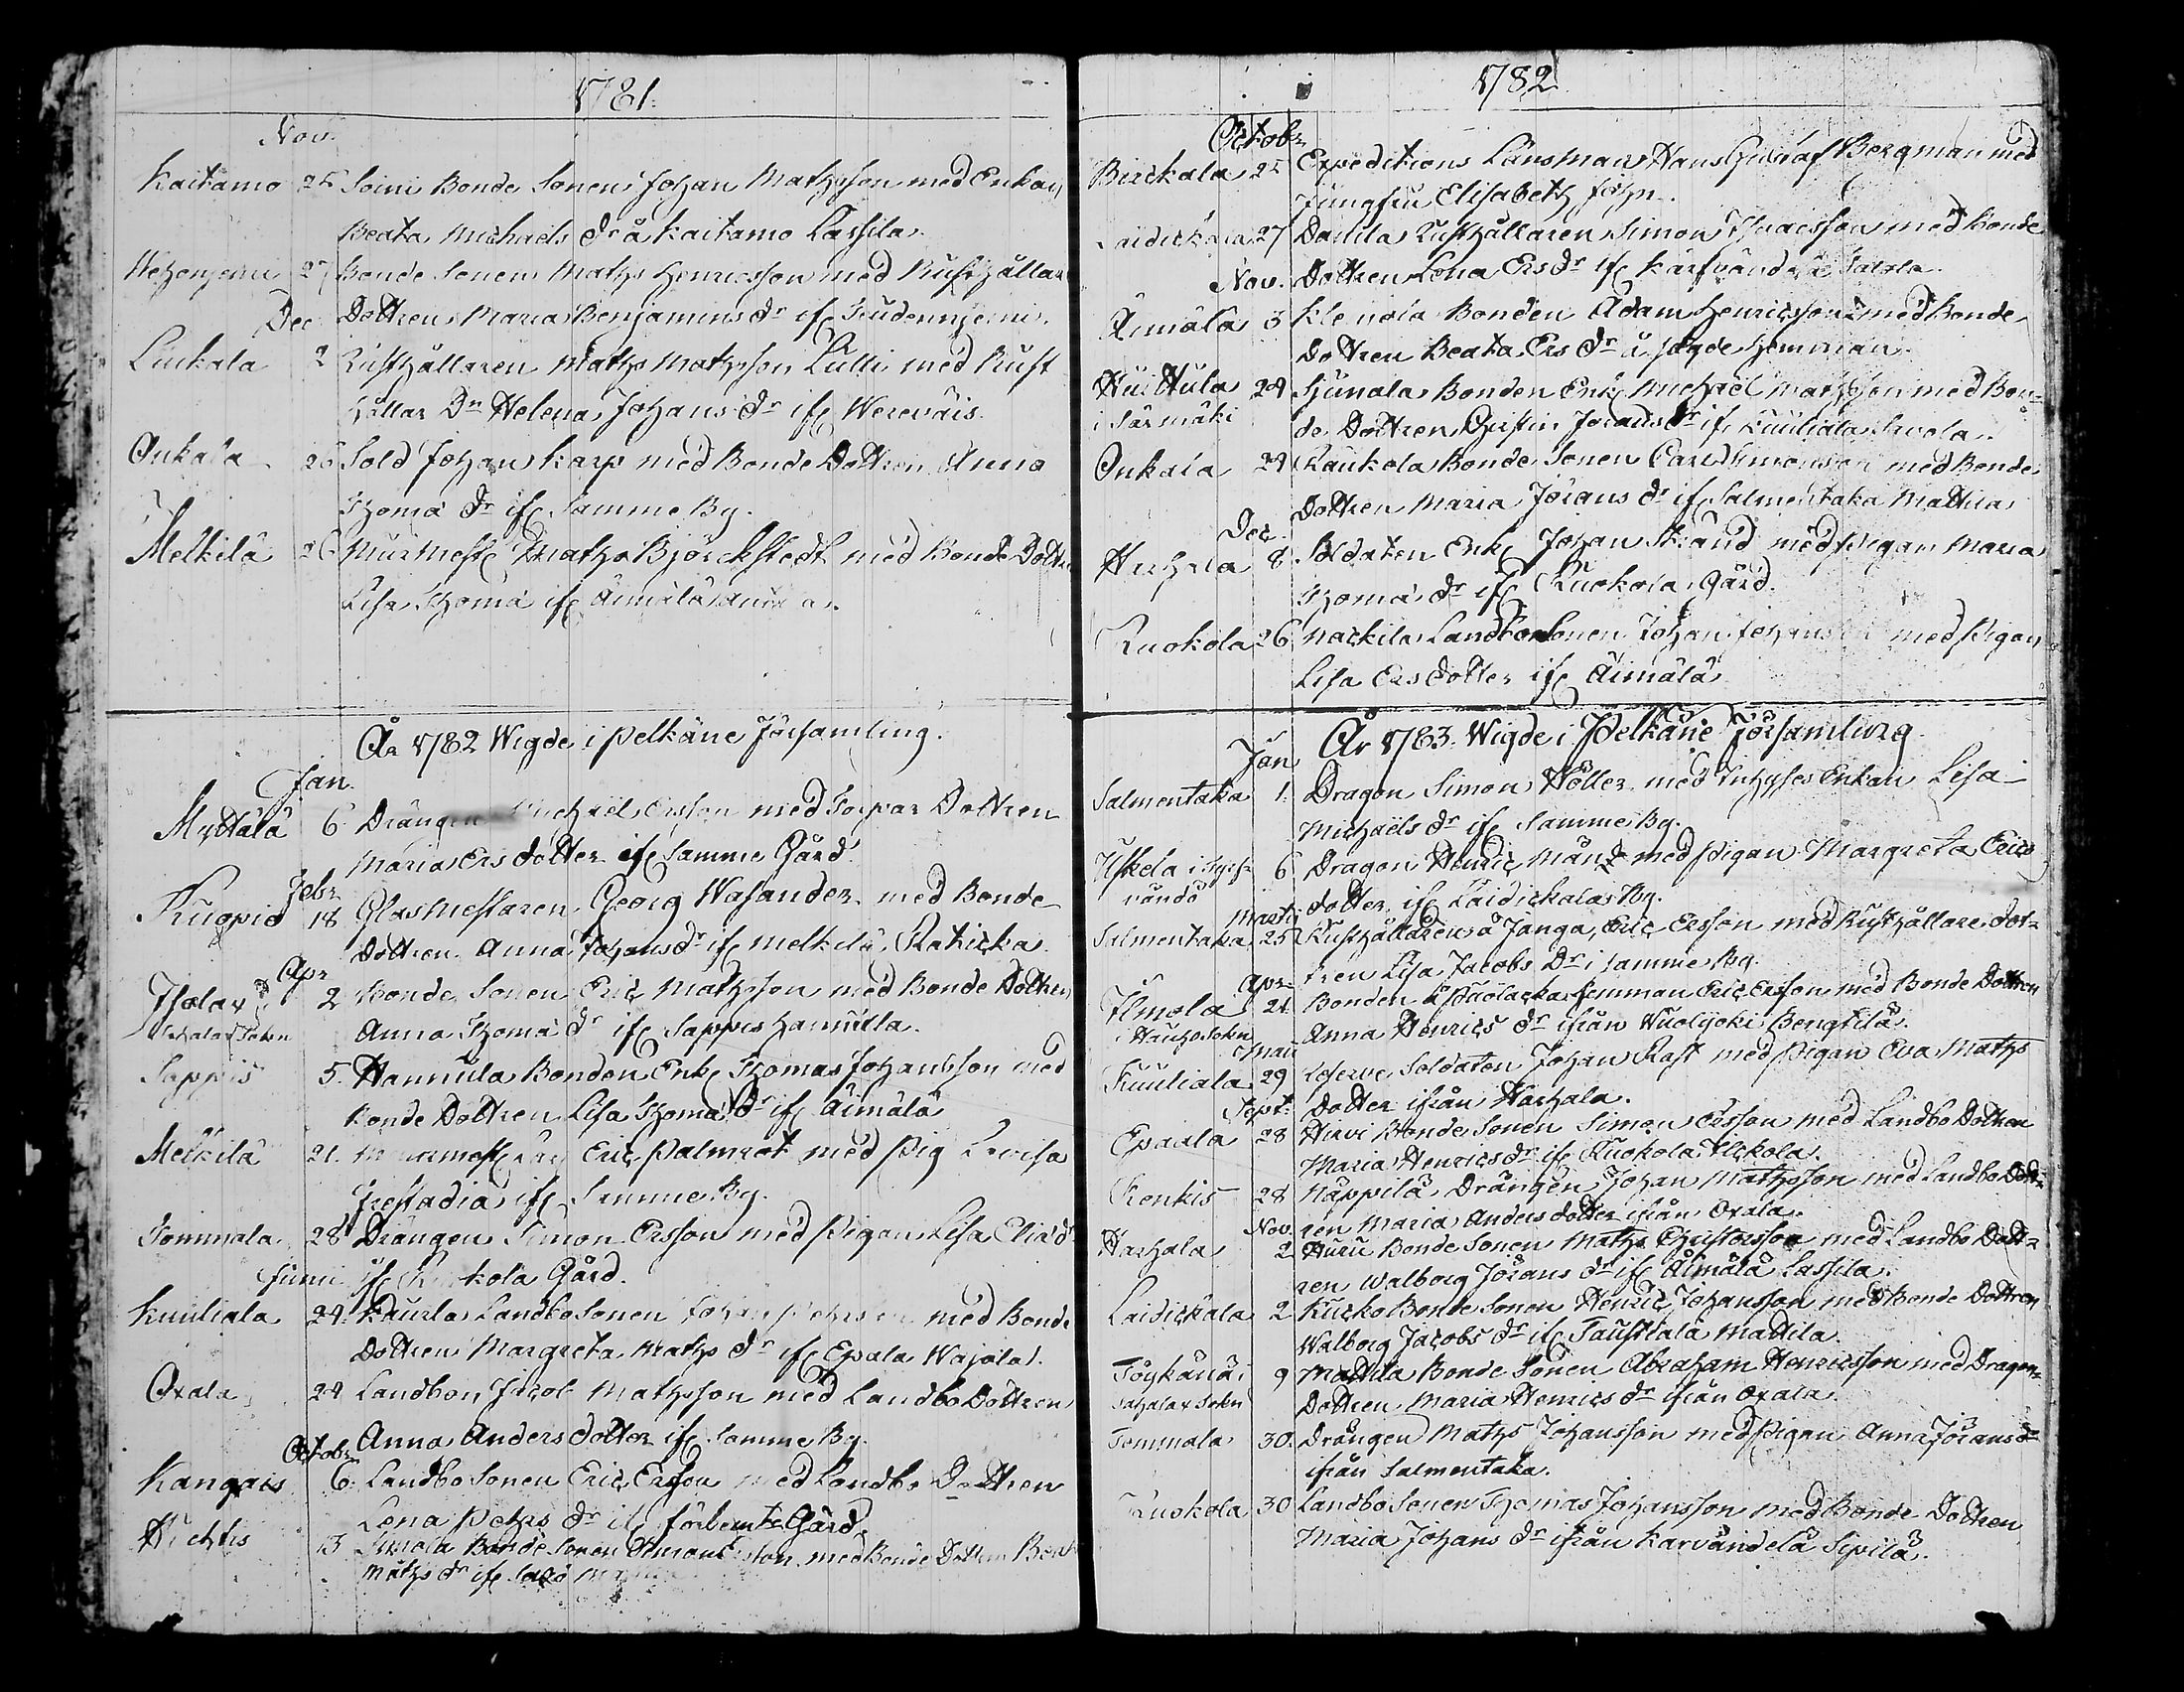 1781.
Nov.
Kaitamo 25 Soini Bonde Sonen Johan Mathsson med Enkan
Beata Michaels dr å Kaitamo Lassila.
27 Bonde Sonen Maths Henricsson med Rusthållar
Dec. Dottren Maria Benjamins dr if
Luikala 2 Rusthållaren Maths Mathsson Lulli med Rust
hållar Dn Helena Johans dr if Wereväis.
Onkala 26 Sold Johan Karp med Bonde Dottren Anna
Thoma dr if Samme By.
Melkilä 26 Murmest Maths Björckstedt med Bonde Dottr
Lisa Thoma if Äimälä
År 1782 Wigde i Pelkäne Församling.
Jan.
Myttälä 6 Drängen Michael Ersson med Torpar Dottren
Maria Ersdotter if Samme Gård.
Febr.
Kuopio 18 Glasmestaren Georg Wasander med Bonde
Dottren Anna Johans dr if Melkilä Raticka.
Apr
2 Bonde Sonen Eric Mathsson med Bonde Dottren
Sahalax Sokn Anna Thoma dr if Sappis Hannula.
Sappis 5. Hannula Bonden Enk Thomas Johansson med
Bonde Dottren Lisa Thoma dr if Äimälä
Melkilä 21. Eric Palmrot med Pig Lovisa
Frestadia if Samme By.
Tommala 28 Drängen Simon Ersson med Pigan Lisa
Junii if kola Gård.
Kuuliala 24. Kaurla Landbo Sonen Johan med Bonde
Dottren Margreta Maths dr if Epala Wajola.
Oxala 24 Landbon Jacob Mathsson med Landbo Dottren
Anna Anders dotter if Samme By.
Octobr
Kangais 6. Landbo Sonen Eric Ersson med Landbo Dottren
Lena Pehrs dr if förbemte Gård.
13 Bonde Sonen Simon med Bonde Dottren
Maths dr if
1782
Octobr
Birckala 25 Expeditions Länsman Hans Gustaf Bergman med
Jungfru Elisabeth
Laidickala 27 Danila Rusthållaren Simon Isaacsson med Bonde
Nov. Dottren Lena Ers dr if Kärfvändelä
Äimälä 3 Klemola Bonden Adam Henricsson med Bonde
Dottren Beata Ers dr å sagde Hemman.
Huittula 24 Junala Bonden Enk Michael Mathsson med Bon=
i Särmäki de Dottren Christin Jörans dr if Kuuliala
Onkala 24 Raukola Bonde Sonen Carl Simonsson med Bonde
Dottren Maria Jörans dr if Salmentaka Mattila
Dec.
8. Soldaten Enk Johan Strand med Pigan Maria
Thoma dr if Ruokola Gård.
Ruokola 26 Landbo Sonen Johan Johansson med Pigan
Lisa Ersdotter if Äimälä
År 1783. Wigde i Pelkäne Församling.
Jan.
Salmentaka 1. Dragon Simon Höller med Inhyses Enkan Lisa
Michaëls dr if Samme By.
6 Dragon Henric Mån med Pigan Margreta Erics
dotter if Laidickala By.
Martii
Salmentaka 25 Rusthållaren å Janga, Eric Ersson med Rusthållare dot=
tren Lisa Jacobs Dr i samme By.
Apr.
Ilmola 21 Bonden Hemman Eric Ersson med Bonde Dottren
i Hauho Sokn Anna Henrics dr ifrån Wuolijoki Bengtilä.
Maii
Kuuliala 29 Reserve Soldaten Johan Rast med Pigan Eva Maths
Sept. Dotter ifrån Harhala.
Epaala 28 Hirvi Bonde Sonen Simon Ersson med Landbo Dottren
Maria Henrics dr if Ruokola
28 Näppilä Drängen Johan Mathsson med Landbo Dott=
Nov. ren Maria Anders dotter ifrån Oxala.
Harhala 2 Bonde Sonen Maths Christersson med Landbo Dott=
ren Walborg Jörans dr if Äimälä Lassila.
Laidickala 2 Kucko Bonde Sonen Henric Johansson med Bonde Dottren
Walborg Jacobs dr if Taustiala Mattila.
9 Mattila Bonde Sonen Abraham Henricsson med Dragon=
Sahalax Sokn Dottren Maria Henrics dr ifrån Oxala.
Tommala 30. Drängen Maths Johansson med Pigan Anna Jörans dr
ifrån Salmentaka.
Ruokola 30 Landbo Sonen Thomas Johansson med Bonde Dottren
Maria Johans dr ifrån Karvändelä Sipilä.